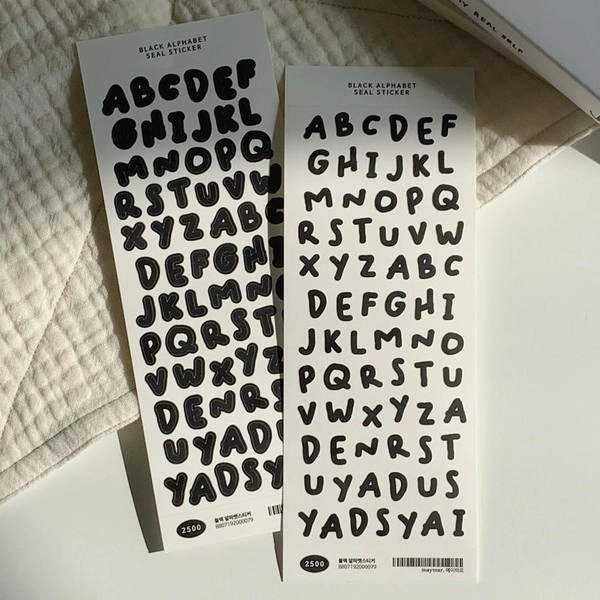 BLACK ALPHABET
SEAL STICKER
ABCDEF
GHIJKL
MNOPQ
RSTUVW
XYZABG
DEFGH
JKLMN
PQRST
VWXYZ
DENRS
UYADU
YADSY
2500
블랙 알파벳스티커
8807192000079
BLACK ALPHABET
SEAL STICKER
ABCDEF
GHIJKL
MNOPQ
RSTUVW
XYZABC
DEFGHI
JKLMNO
PQRSTU
VWXYZA
DENRST
UYADUS
YADSYAI
2500
블랙 알파벳스티커
8807192000079
maymar, 메이마르
MY REAL SELF